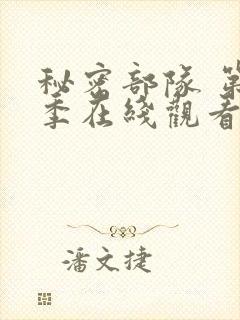 秘密部隊 第
季在綫觀看
潘文捷